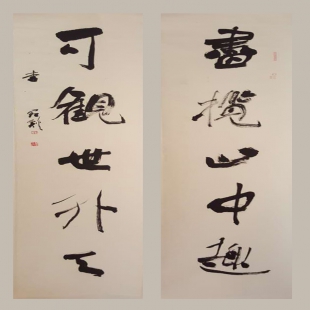 盡攬山中趣
可觀世外天